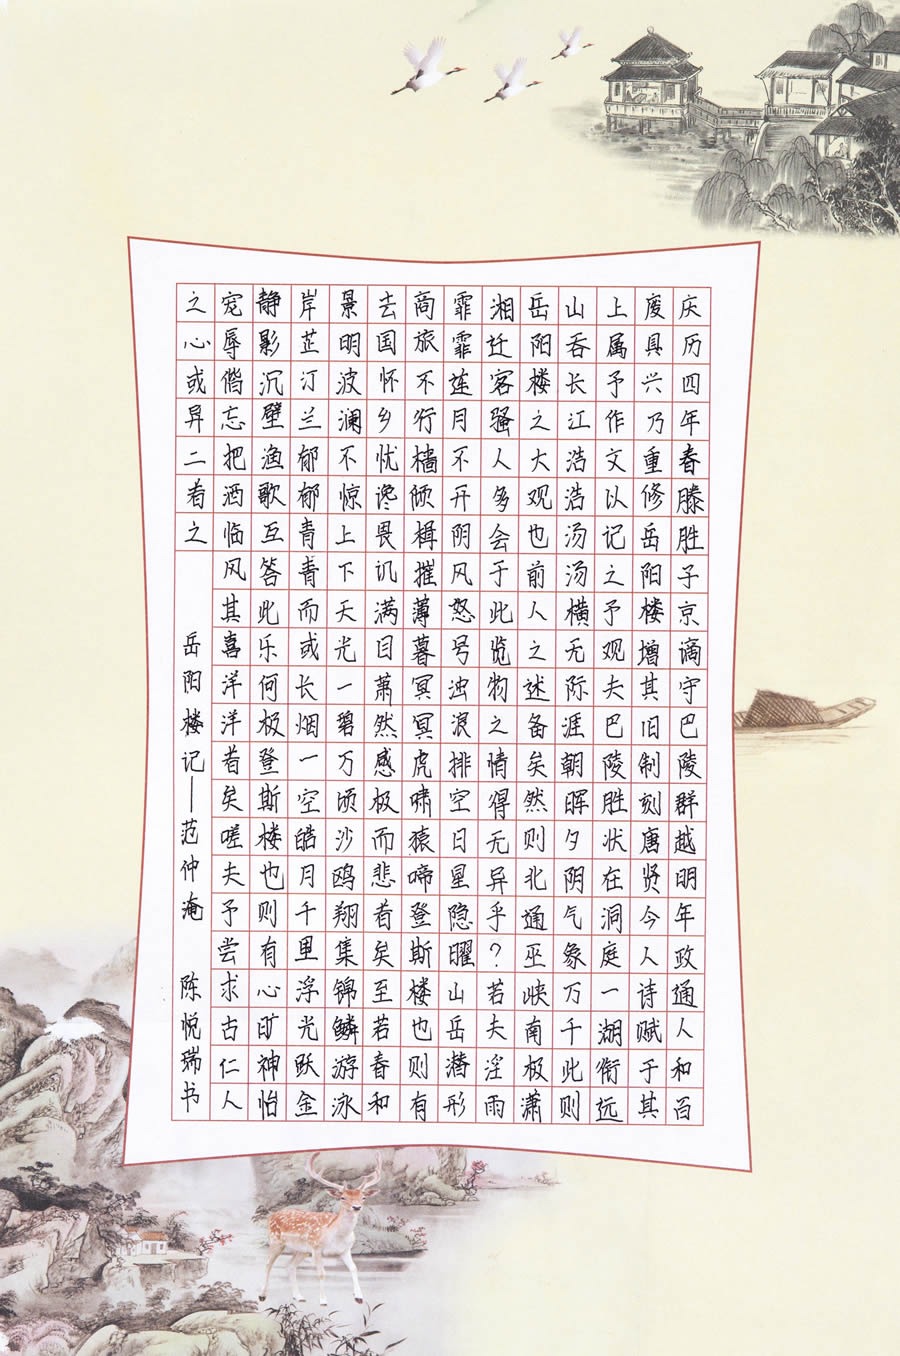 庆历四年春滕胜子京谪守巴陵群越明年政通人和百
废具兴乃重修岳阳楼增其旧制刻唐贤今人诗赋于其
上属予作文以记之予观夫巴陵胜状在洞庭一湖衔远
山吞长江浩浩汤汤横无际涯朝晖夕阴气象万千此则
岳阳楼之大观也前人之述备矣然则北通巫峡南极潇
湘迁客骚人多会于此览物之情得无异乎?若夫淫雨
霏霏连月不开阴风怒号浊浪排空日星隐曜山岳潜形
商旅不行樯倾楫摧薄暮冥冥虎啸猿啼登斯楼也则有
去国怀乡忧谗畏讥满目萧然感极而悲者矣至若春和
景明波澜不惊上下天光一碧万顷沙鸥翔集锦鳞游泳
岸芷汀兰郁郁青青而或长烟一空皓月千里浮光跃金
静影沉壁渔歌互答此乐何极登斯楼也则有心旷神怡
宠辱偕忘把酒临风其喜洋洋者矣嗟夫予尝求古仁人
之心或异二者之
岳阳楼记——范仲淹 陈悦瑞书